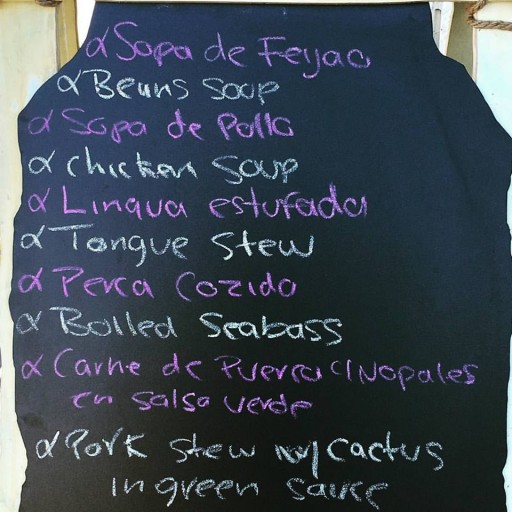 ∝ Sopa de Feijao
∝ Beans soup
∝ Sopa de Pollo
∝ chicken soup
∝ Lingua estufada
∝ Tongue stew
∝ Perca Cozido
∝ Boiled Seabass
∝ Carne de Puerco c/ Nopales
en salsa verde
∝ Pork stew w/ cactus
in green sauce